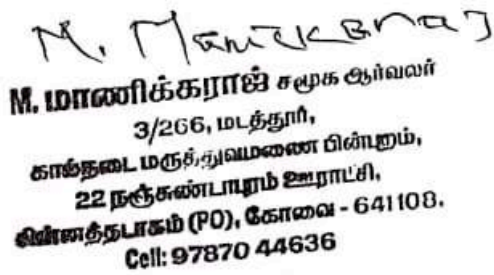 M. Manickaraj
M. மாணிக்கராஜ் சமூக ஆர்வலர்
3/266, மடத்தூர்,
கால்நடை மருத்துவமணை பின்புறம்,
22 நஞ்சுண்டாபுரம் ஊராட்சி,
சின்னத்தடாகம் (PO), கோவை - 641108.
Cell: 97870 44636